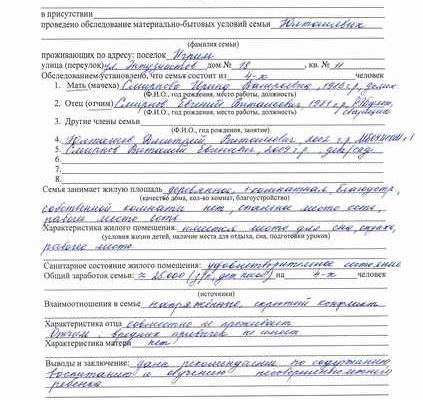 в присутствии
проведено обследование материально-бытовых условий семьи Юлташевых
(фамилия семьи)
проживающих по адресу: поселок Игрим
улица (переулок) ул. Энтузиастов дом № 18 , кв. № 11
Обследованием установлено, что семья состоит из 4-х человек
1. Мать (мачеха) Смирнова Ирина Валерьевна,
(Ф.И.О., год рождения, место работы, должность)
2. Отец (отчим) Смирнов Евгений Витальевич, 1981 г.р.
(Ф.И.О., год рождения, место работы, должность)
3. Другие члены семьи
(Ф.И.О., год рождения, занятие)
4. Юлташев Дмитрий Витальевич, 2002 г.р.
5. Смирнов Виталий Евгеньевич, 2009 г.р., дет/сад
6.
7.
8.
Семья занимает жилую площадь деревянное, комнатная благоустр,
(качество дома, кол-во комнат, благоустройство)
собственной комнаты нет, спальное место есть,
рабочее место есть
Характеристика жилого помещения: имеется место для сна, отдыха,
(условия жизни детей, наличие места для отдыха, сна, подготовки уроков)
рабочее место
Санитарное состояние жилого помещения: удовлетворительное состояние
Общий заработок семьи: ≈ 25.000 (з/п, дет. пособ) на 4-х человек
(источники)
Взаимоотношения в семье напряженные, скрытный конфликт
Характеристика отца совместно не проживает
Отчим вредных привычек не имеет
Характеристика матери нет
Выводы и заключение: даны рекомендации по содержанию,
воспитанию и обучению несовершеннолетнего
ребенка